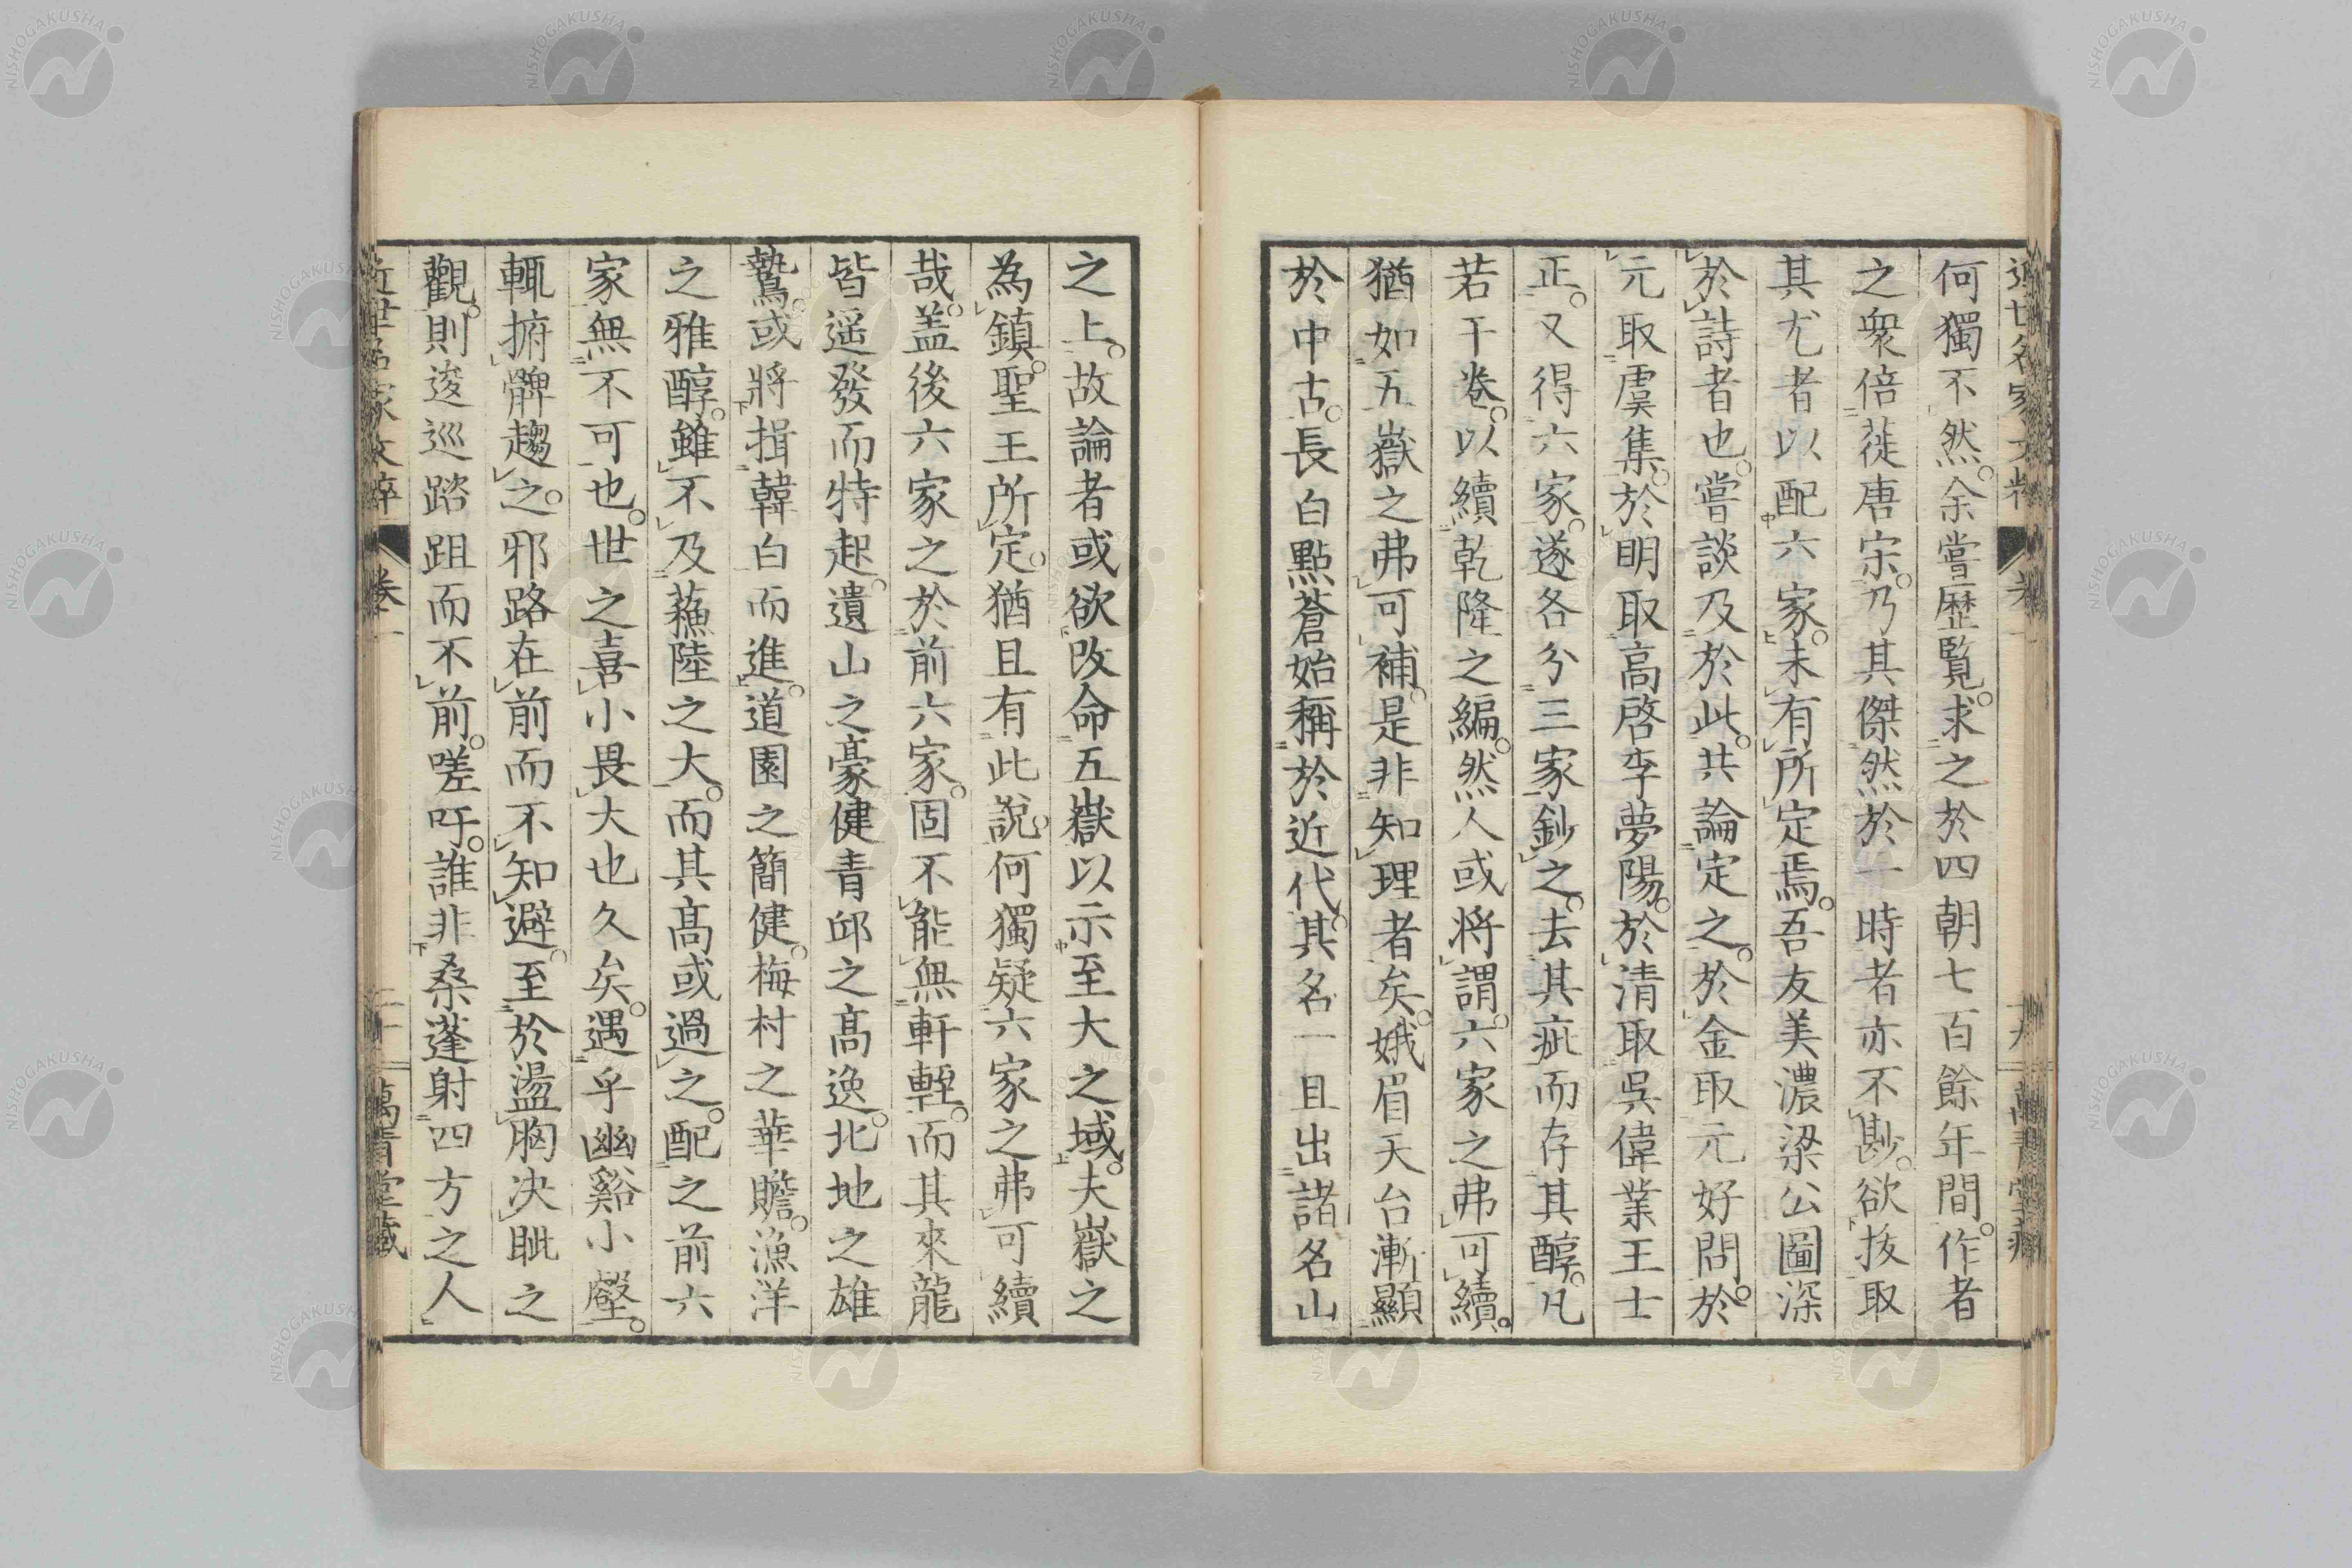 近世名家文粹 卷一 十九 萬青堂藏
何獨不然。余嘗歴覽。求之於四朝七百餘年間。作者
之衆倍蓰唐宗。乃其傑然於一時者亦不尠。欲抜取
其尤者以配六家。未有所定焉。吾友美濃梁公圖深
於詩者也。嘗談及於此。共論定之。於金取元好問。於
元取虞集。於明取高啓李夢陽。於清取吳偉業王士
正。又得六家。遂各分三家鈔之。去其疵而存其醇。凡
若干卷。以續乾隆之編。然人或将謂。六家之弗可續。
猶如五嶽之弗可補。是非知理者矣。娥眉天台漸顯
於中古。長白點蒼始稱於近代。其名一旦出諸名山
之上。故論者或欲改命五嶽以示至大之域。夫嶽之
為鎮。聖王所定。猶且有此説。何獨疑六家之弗可續
哉。盖後六家之於前六家。固不能無軒輊。而其來龍
皆遥發而特起。遺山之豪健青邱之高逸。北地之雄
鷙。或將揖韓白而進。道園之簡健。梅村之華贍。漁洋
之雅醇。雖不及蘓陸之大。而其高或過之。配之前六
家無不可也。世之喜小畏大也久矣。遇乎幽谿小壑。
輒捬髀趨之。邪路在前而不知避。至於盪胸决眦之
觀。則逡巡踏跙而不前。嗟吁。誰非桑蓬射四方之人
近世名家文粹 卷一 二十 萬青堂藏
NISHOGAKUSHA